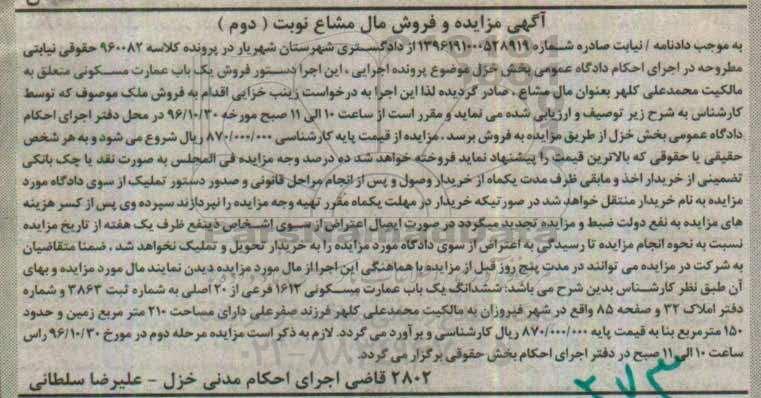 آگهی مزایده و فروش مال مشاع نوبت ( دوم )
به موجب دادنامه / نیابت صادره شماره ۱۳۹۶۱۹۱۰۰۰۵۲۸۹۱۹ از دادگستری شهرستان شهریار در پرونده کلاسه ۹۶۰۰۸۲ حقوقی نیابتی
مطروحه در اجرای احکام دادگاه عمومی بخش خزل موضوع پرونده اجرایی ، این اجرا دستور فروش یک باب عمارت مسکونی متعلق به
مالکیت محمدعلی کلهر بعنوان مال مشاع ، صادر گردیده لذا این اجرا به درخواست زینب خزایی اقدام به فروش ملک موصوف که توسط
کارشناس به شرح زیر توصیف و ارزیابی شده می نماید و مقرر است از ساعت ۱۰ الی ۱۱ صبح مورخه ۹۶/۱۰/۳۰ در محل دفتر اجرای احکام
دادگاه عمومی بخش خزل از طریق مزایده به فروش برسد . مزایده از قیمت پایه کارشناسی ۸۷۰/۰۰۰/۰۰۰ ریال شروع می شود و به هر شخص
حقیقی یا حقوقی که بالاترین قیمت را پیشنهاد نماید فروخته خواهد شد ده درصد وجه مزایده فی المجلس به صورت نقد یا چک بانکی
تضمینی از خریدار اخذ و مابقی ظرف مدت یکماه از خریدار وصول و پس از انجام مراحل قانونی و صدور دستور تملیک از سوی دادگاه مورد
مزایده به نام خریدار منتقل خواهد شد در صورتیکه خریدار در مهلت یکماه مقرر تهیه وجه مزایده را نپردازند سپرده وی پس از کسر هزینه
های مزایده به نفع دولت ضبط و مزایده تجدید میگردد در صورت ایصال اعتراض از سوی اشخاص ذینفع ظرف یک هفته از تاریخ مزایده
نسبت به نحوه انجام مزایده تا رسیدگی به اعتراض از سوی دادگاه مورد مزایده را به خریدار تحویل و تملیک نخواهد شد ، ضمنا متقاضیان
به شرکت در مزایده می توانند در مدت پنج روز قبل از مزایده با هماهنگی این اجرا از مال مورد مزایده دیدن نمایند مال مورد مزایده و بهای
آن طبق نظر کارشناس بدین شرح می باشد: ششدانگ یک باب عمارت مسکونی ۱۶۱۲ فرعی از ۲۰ اصلی به شماره ثبت ۳۸۶۳ و شماره
دفتر املاک ۳۲ و صفحه ۸۵ واقع در شهر فیروزان به مالکیت محمدعلی کلهر فرزند صفرعلی دارای مساحت ۲۱۰ متر مربع زمین و حدود
۱۵۰ مترمربع بنا به قیمت پایه ۸۷۰/۰۰۰/۰۰۰ ریال کارشناسی و برآورد می گردد. لازم به ذکر است مزایده مرحله دوم در مورخ ۹۶/۱۰/۳۰ راس
ساعت ۱۰ الی ۱۱ صبح در دفتر اجرای احکام بخش حقوقی برگزار می گردد.
۲۸۰۲ قاضی اجرای احکام مدنی خزل - علیرضا سلطانی